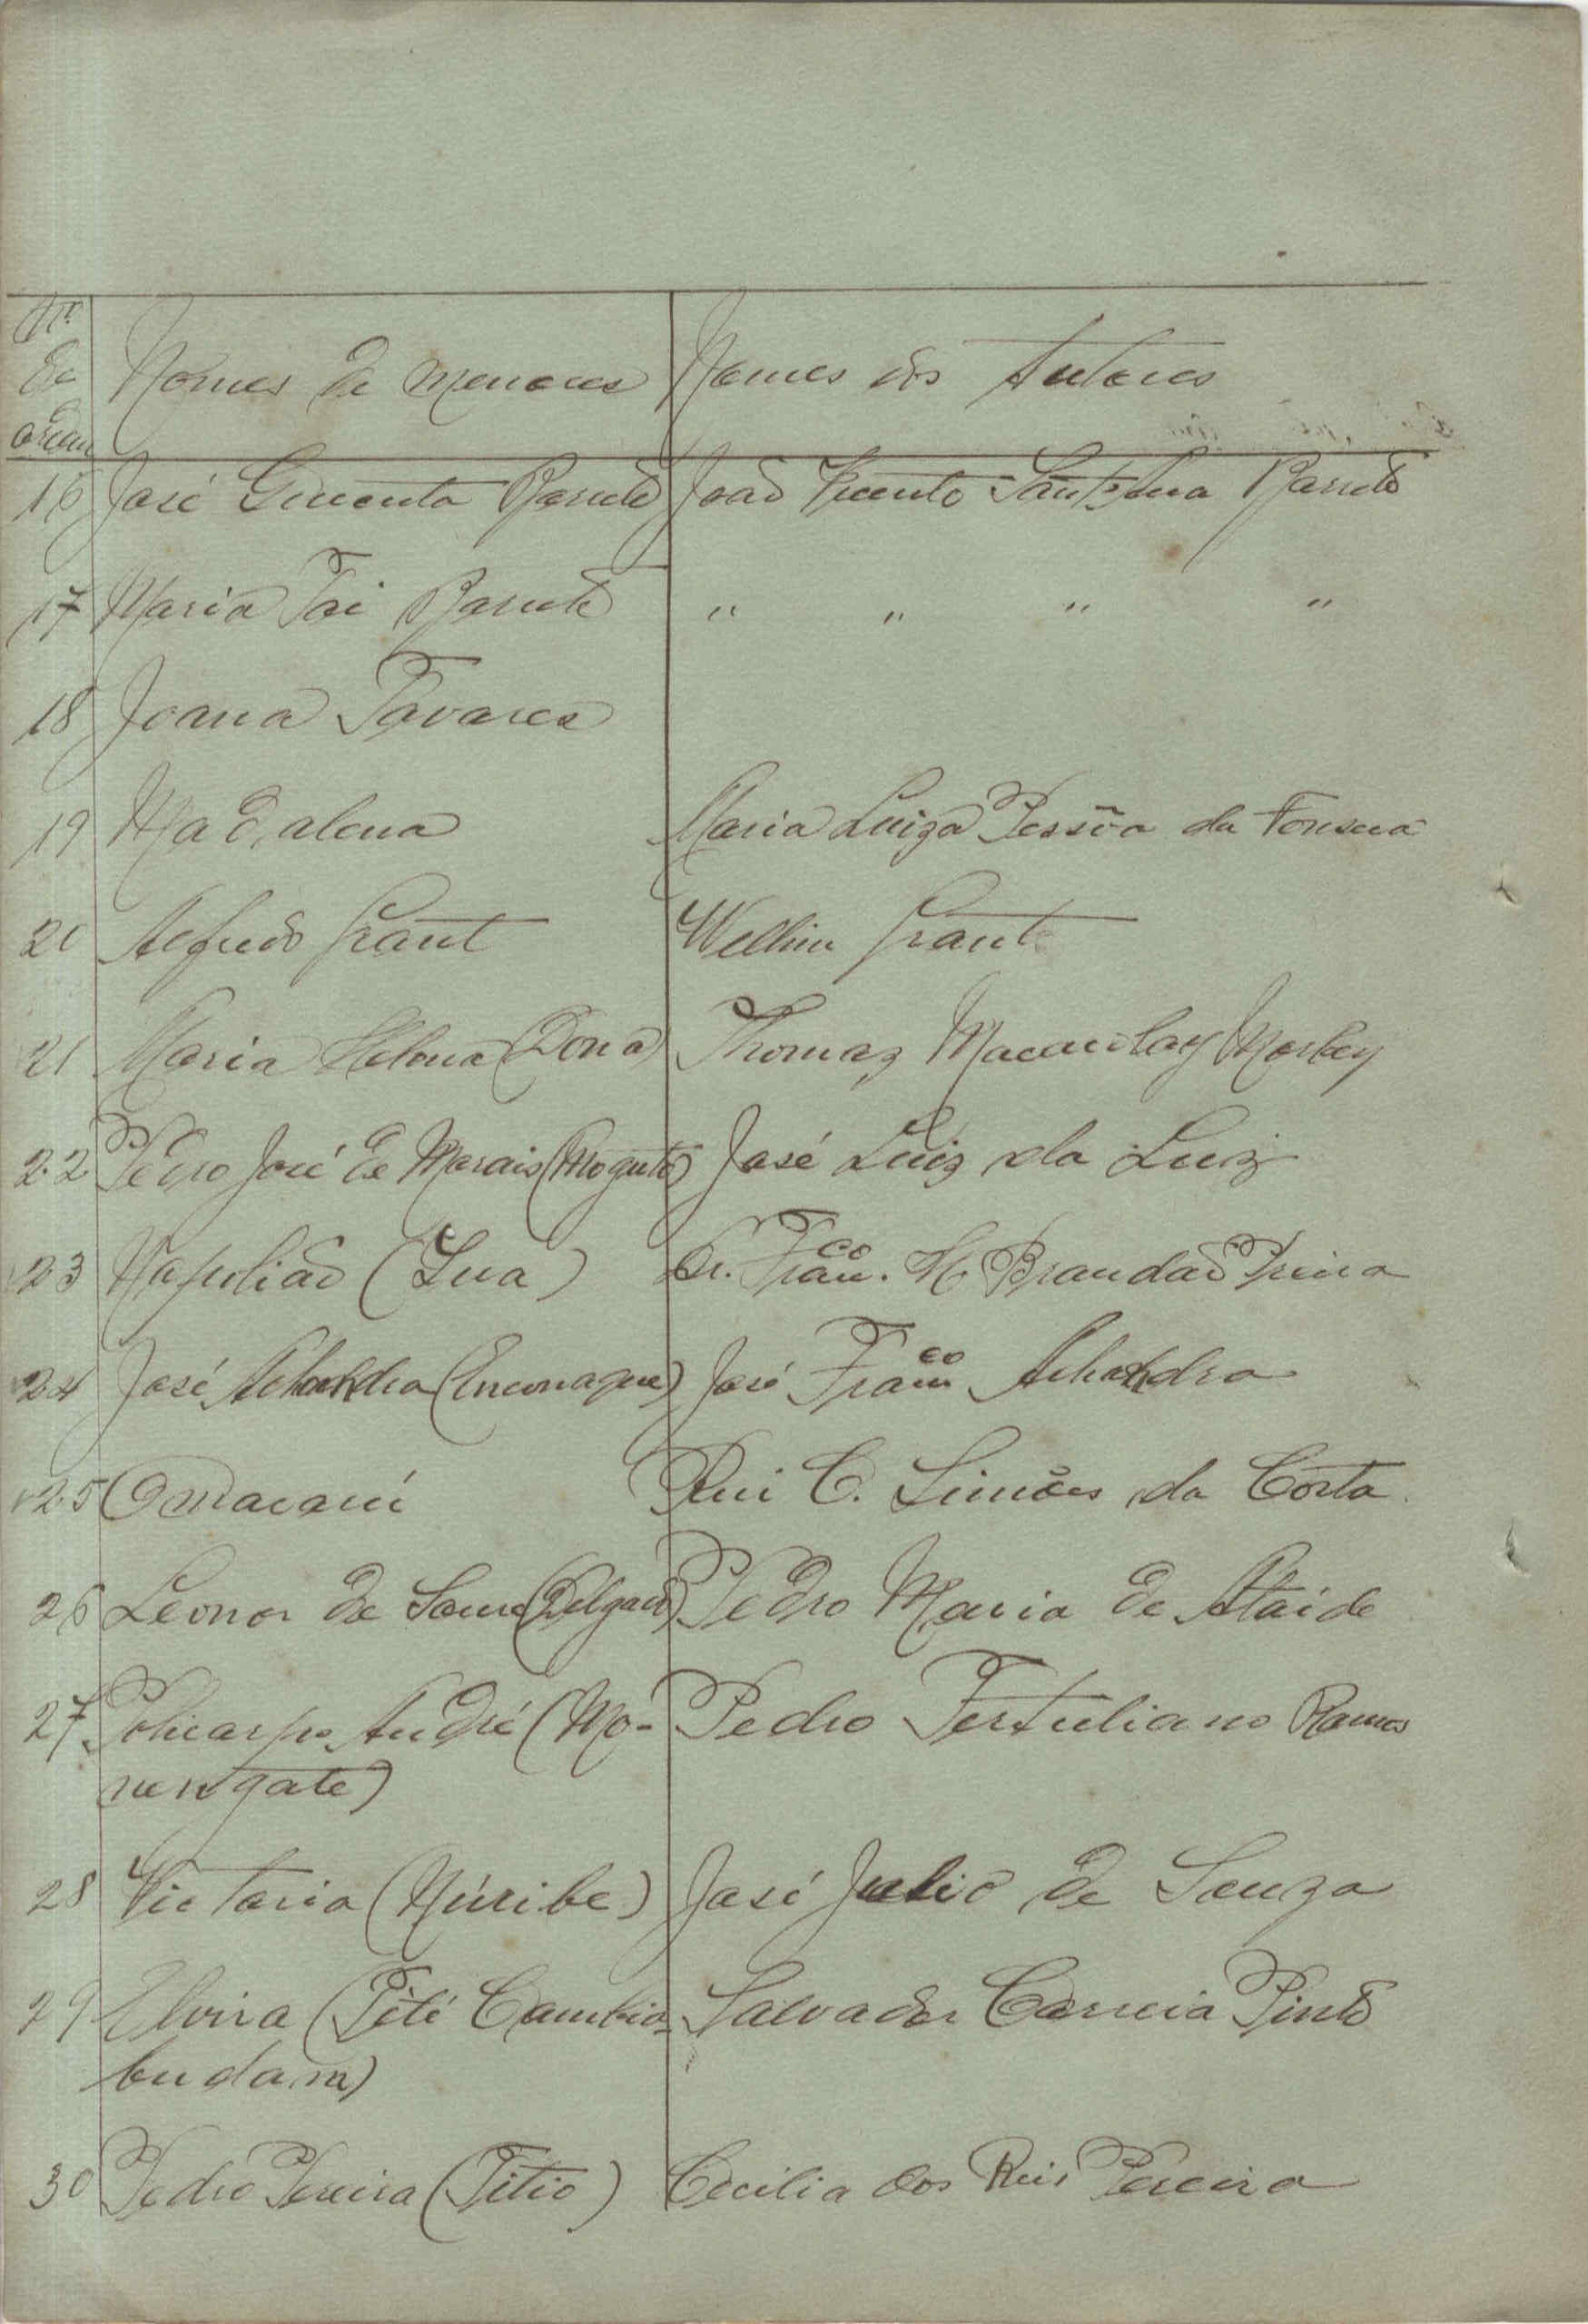 Nº
de
ordem
Nomes de menores Nomes dos tutores
16 José Barreto João Vicente Sant'Anna Barreto
17 Maria Fai Barreto " " " "
18 Joana Tavares
19 Magdalena Maria Luiza Pessôa da Fonseca
20 Alfredo Grant Grant
21 Maria Helena (Dona) Thomaz Macaulay Morley
22 Pedro José de Morais José Luiz da Luz
23 Napolião (Lua) Dr. Franco. Brandão
24 José José Franco
25 Rui C. Simões da Costa
26 Leonor de (Delgado) Pedro Maria de Ataide
27 Policarpo André (Mo- Pedro Tertuliano Ramos
nengate)
28 Victoria (Múribe) José Julio de Souza
29 Elvira (Pité Salvador Correia Pinto
30 Pedro Pereira (Titio) Cecilia dos Reis Pereira